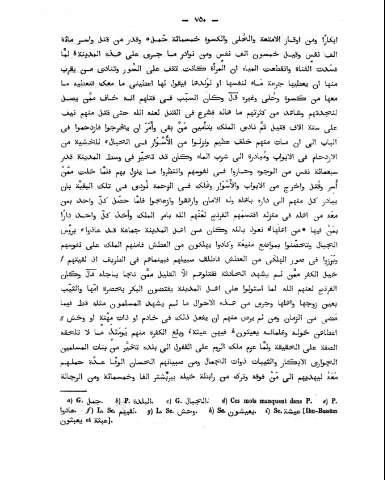 — ٧٥٠ —
ابكارًا ومن اوقار الامتعة والحُلى والكسوة خمسمائة حمل وقدر من قتل واسر مائة
الف نفس وقيل خمسون الف نفس ومن نوادر ما جرى على هذه المدينة لمّا
فسدت القناة وانقطعت المياه ان المرأة كانت تقف على السور وتنادى من يقرب
منها ان يعطيها جرعة ماء لنفسها او لولدها فيقول لها اعطينى ما معك فتعطيه ما
معها من كسوة وحلى وغيره قال وكان السبب فى قتلهم انه خاف ممّن يصل
لنجدتهم وشاهد من كثرتهم ما هاله فشرع لعنه الله فى القتل حتى قتل منهم نيف
على ستة الاف قتيل ثم نادى الملك بتأمين من بقى وأمر ان يخرجوا فازدحموا فى
الباب الى ان مات منهم خلف عظيم ونزلوا من الأسوار فى الحبال للخشية من
الازدحام فى الابواب ومبادرة الى شرب الماء وكان قد تحيّز فى وسط المدينة قدر
سبعمائة نفس من الوجوه وحاروا فى نفوسهم وانتظروا ما ينزل بهم فلمّا خلت ممّن
أسر وقتل واخرج من الابواب والأسوار وهلك فى الزحمة نودى فى تلك البقية بان
يبادر كل منهم الى داره باهله وله الامان وارهقوا وازعجوا فلمّا حصل كل واحد بمن
معه من اهله فى منزله اقتسمهم الفرنج لعنهم الله بامر الملك وأخذ كل واحد دارًا
بمن فيها من اهلها نعوذ بالله وكان من اهل المدينة جماعة قد عاذوا برؤس
الجبال وتحصّنوا بمواضع منيعة وكادوا يهلكون من العطش فامنهم الملك على نفوسهم
وبرزوا فى صور الهلكى من العطش فاطلف سبيلهم فبينما هم فى الطريف اذ لقيتهم
خيل الكفر ممّن لم يشهد الحادثة فقتلوهم الا القليل ممّن نجا باجله قال وكان
الفرنج لعنهم الله لما استولوا على اهل المدينة يفتضون البكر بحضرة ابيها والثيب
بعين زوجها واهلها وجرى من هذه الاحوال ما لم يشهد المسلمون مثله قط فيما
مضى من الزمان ومن لم يرض منهم ان يفعل ذلك فى خادم او ذات مهنة او وخش
اعطاهن خوله وغلمانه يعيثون فيهن عيثه وبلغ الكفرة منهم يومئذ ما لا تلحقه
الصفة على الحقيقة ولمّا عزم ملك الروم على القفول الى بلده تخيّر من بنات المسلمين
الجوارى الابكار والثيبات ذوات الجمال ومن صبيانهم الحسان الوفا عدّة حملهم
معه ليهديهم الى من فوقه وترك من رابطة خيله ببربشتر الفا وخمسمائة ومن الرجالة
a) G. جمل. b) P. البلدة. c) G. الجبال. d) Ces mots manquent dans P. e) P.
عادوا. f) L. Sc. لقيهم. g) L. Sc. وحش. h) Sc. يعيشون. i) Sc. عيشة [Ibn-Bassám
يعبثون et عبثهم].